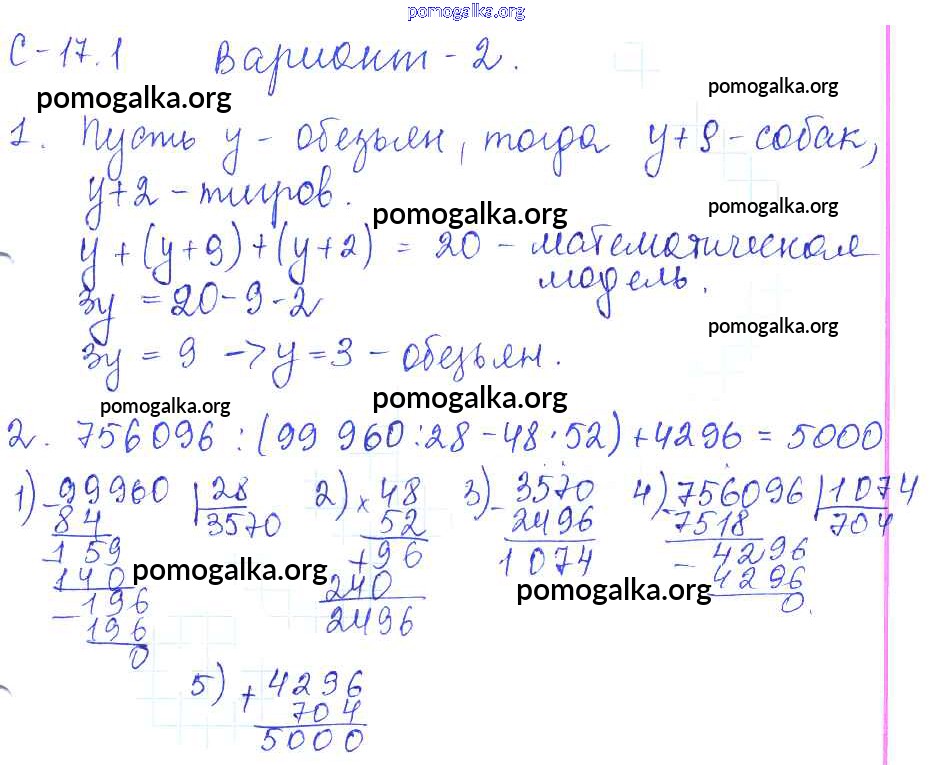 pomogalka.org
С-17.1 Вариант-2.
pomogalka.org pomogalka.org
1. Пусть y - обезьян, тогда y+9-собак,
y+2-тигров.
pomogalka.org pomogalka.org
y+(y+9)+(y+2) = 20 - математическая
модель.
3y = 20-9-2
pomogalka.org
3y = 9 -> y=3 - обезьян.
pomogalka.org pomogalka.org
2. 756096:(99 960:28-48·52)+4296=5000
1) - 99960 | 28
84 3570
- 159
140
- 196
196
0
2) × 48
52
+ 96
240
2496
3) - 3570
2496
1074
4) - 756096 | 1074
7518 704
- 4296
4296
0.
pomogalka.org pomogalka.org
5) + 4296
704
5000